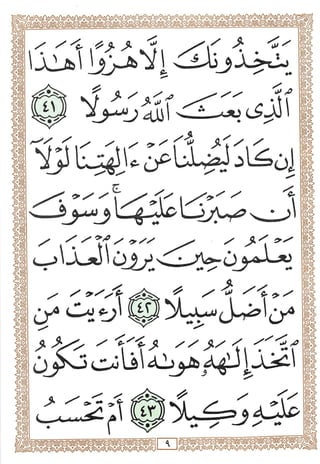 يَتَّخِذُونَكَ إِلَّا هُزُوًا أَهَٰذَا
ٱلَّذِى بَعَثَ ٱللَّهُ رَسُولًا ٤١
إِن كَادَ لَيُضِلُّنَا عَنْ ءَالِهَتِنَا لَوْلَآ
أَن صَبَرْنَا عَلَيْهَا ۚ وَسَوْفَ
يَعْلَمُونَ حِينَ يَرَوْنَ ٱلْعَذَابَ
مَنْ أَضَلُّ سَبِيلًا ٤٢ أَرَءَيْتَ مَنِ
ٱتَّخَذَ إِلَٰهَهُۥ هَوَىٰهُ أَفَأَنتَ تَكُونُ
عَلَيْهِ وَكِيلًا ٤٣ أَمْ تَحْسَبُ
٩